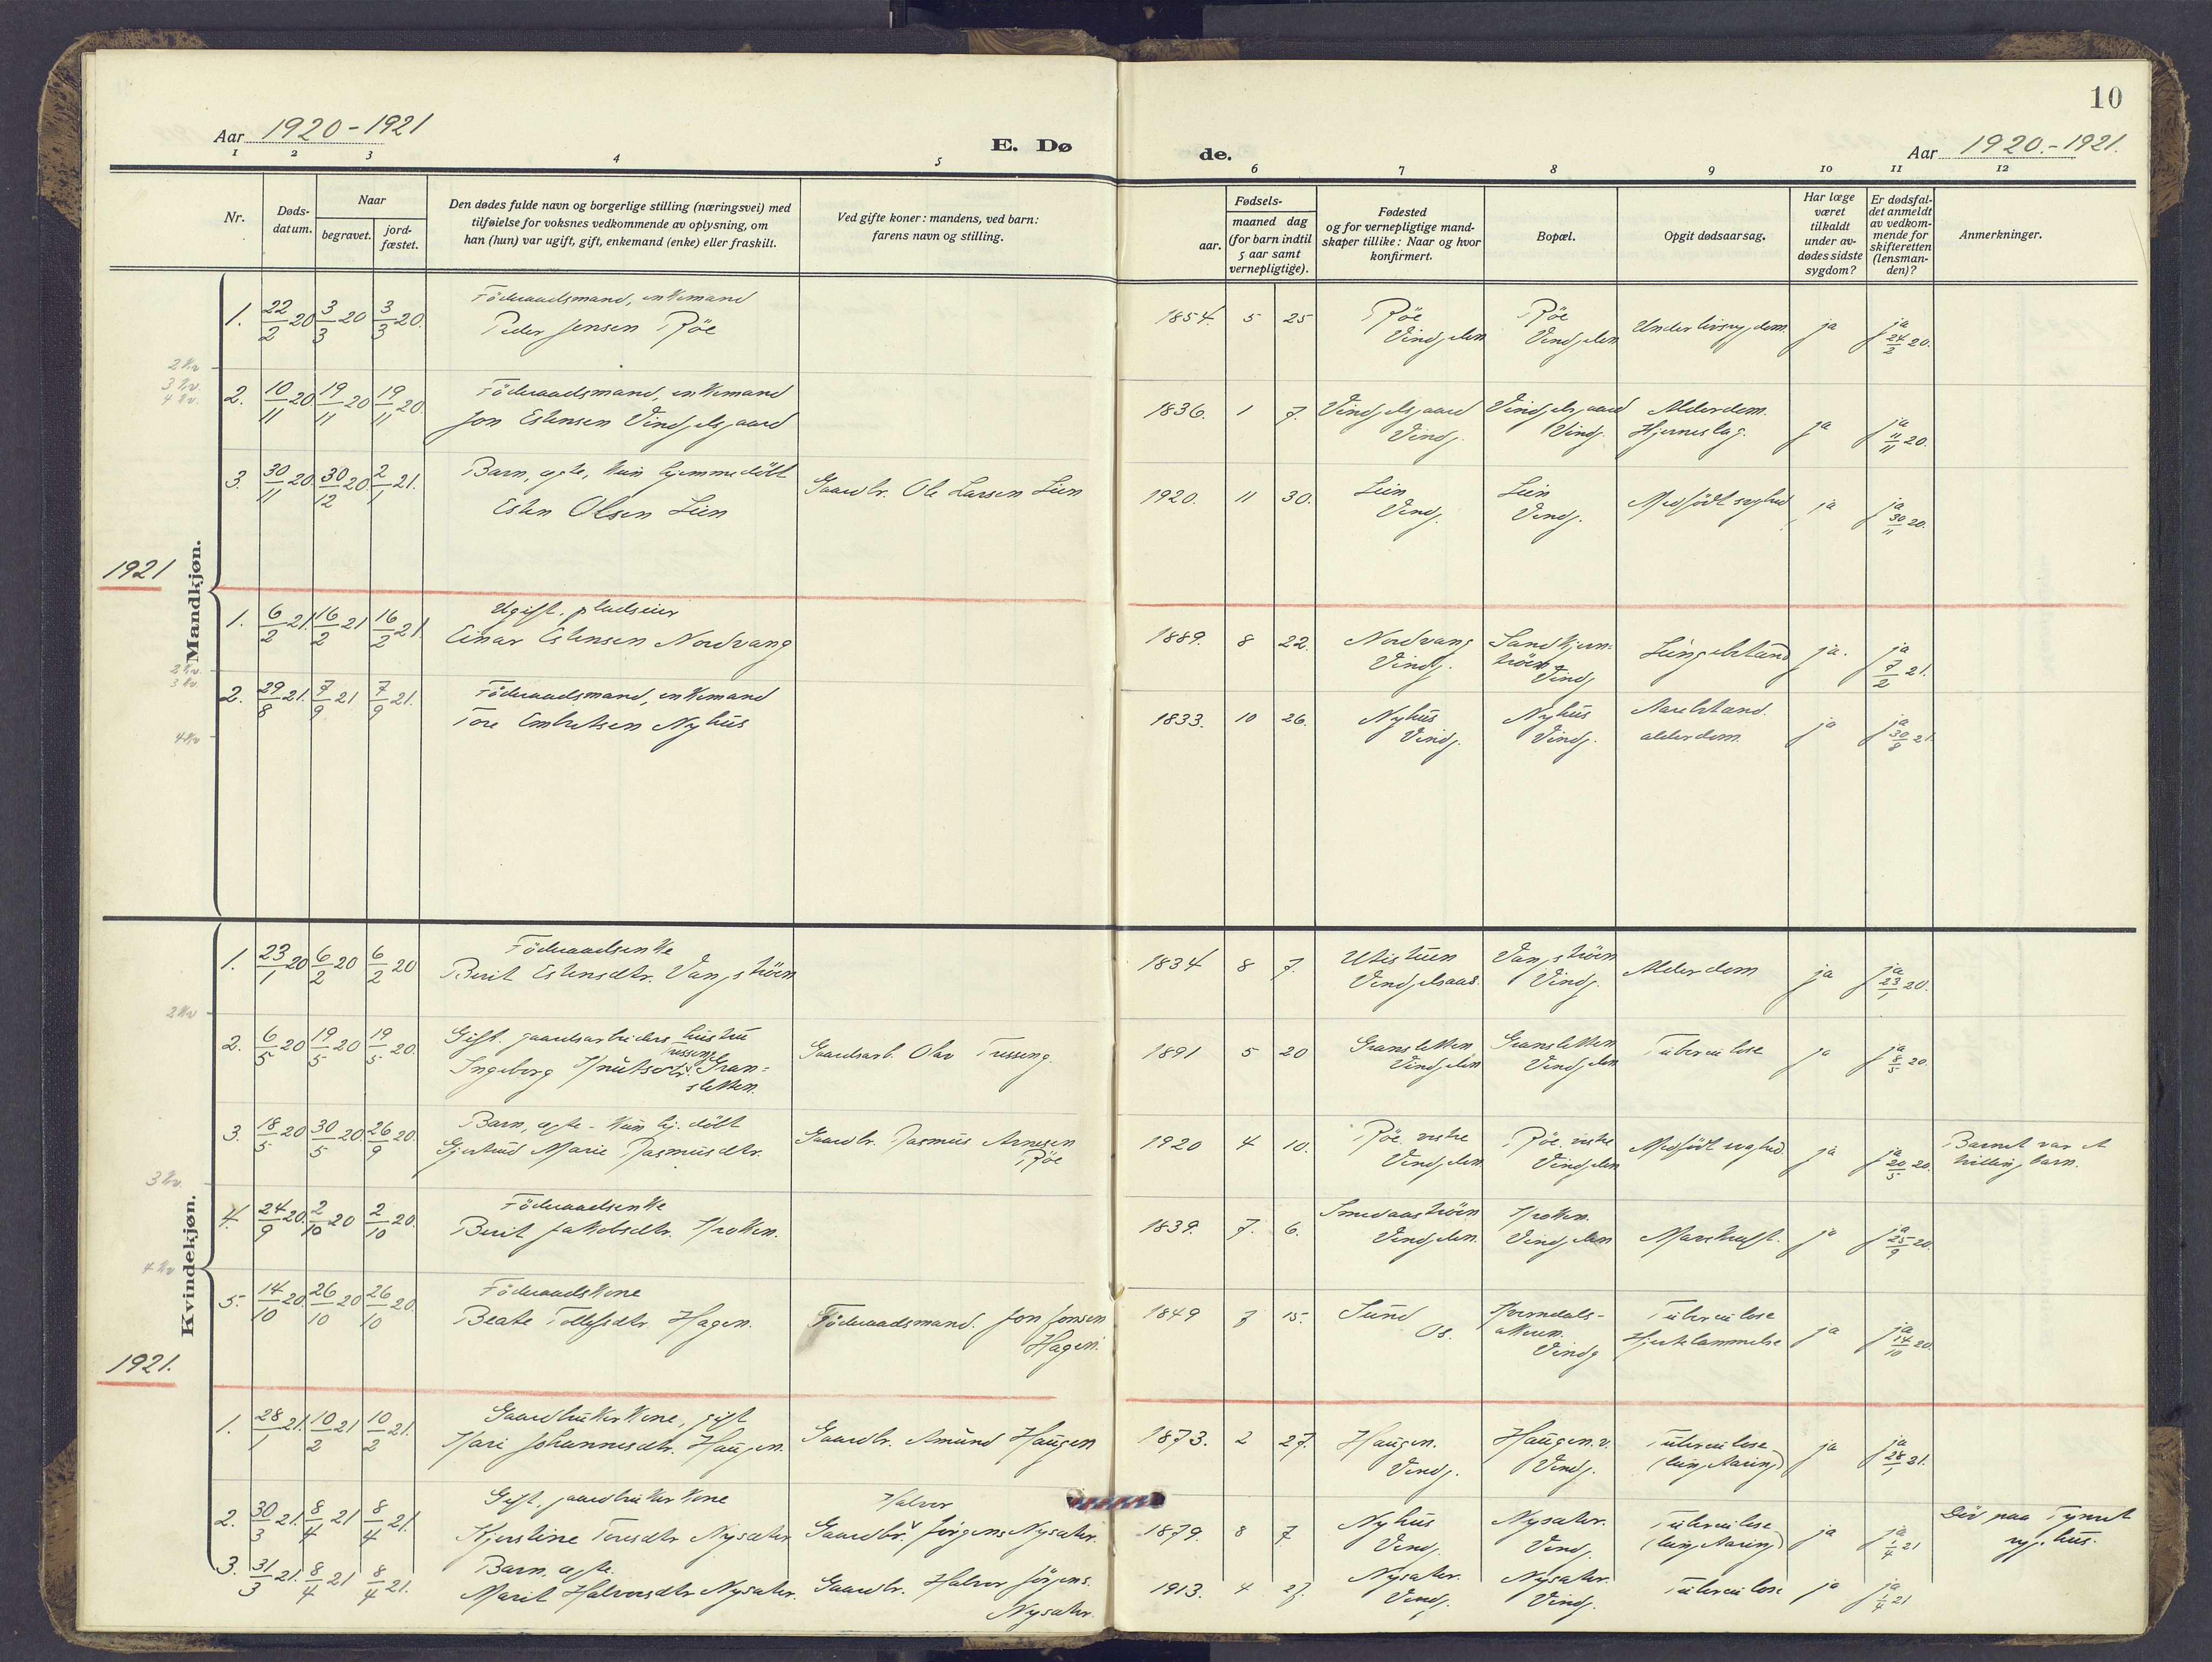 10
Aar 1920-1921
E. Dø
de.
Aar 1920.-1921.
1 2 3 4 5 6 7 8 9 10 11 12
Nr.
Døds-
datum.
Naar
begravet.
jord-
fæstet.
Den dødes fulde navn og borgerlige stilling (næringsvei) med
tilføielse for voksnes vedkommende av oplysning, om
han (hun) var ugift, gift, enkemand (enke) eller fraskilt.
Ved gifte koner: mandens, ved barn:
farens navn og stilling.
Fødsels-
aar.
maaned dag
(for barn indtil
5 aar samt
vernepligtige).
Fødested
og for vernepligtige mand-
skaper tillike: Naar og hvor
konfirmert.
Bopæl.
Opgit dødsaarsag.
Har læge
været
tilkaldt
under av-
dødes sidste
sygdom?
Er dødsfal-
det anmeldt
av vedkom-
mende for
skifteretten
(lensman-
den)?
Anmerkninger.
Mandkjøn.
1. 22/2 20 3/3 20 3/3 20. Föderaadsmand, enkemand
Peder Jensen Röe
1854. 5 25 Röe Vingelen Röe Vingelen Underlivssygdom. ja ja 24/2 20.
2 Kv
3 Kv.
4 Kv.
2. 10/11 20 19/11 20 19/11 20. Föderaadsmand, enkemand
Jon Estensen Vingelsgaard
1836. 1 7. Vingelsgaard Ving. Vingelsgaard Ving. Alderdom. Hjerneslag. ja ja 11/11 20.
3. 30/11 20 30/12 20 2/1 21. Barn, egte, kun hjemmedöbt
Esten Olsen Lien
Gaardbr. Ole Larsen Lien
1920. 11 30. Lien Ving. Lien Ving. Medfödt svaghed ja ja 30/11 20.
1921
1. 6/2 21. 16/2 21 16/2 21 Ugift. pladseier
Einar Estensen Nordvang
1889. 8 22. Nordvang Ving. Sandkjern- tröen Ving. Lungebetænd ja. ja 7/2 21.
2 Kv.
3 Kv.
2. 29/8 21. 7/9 21 7/9 21. Föderaadsmand, enkemand
Tore Embretsen Nyhus
1833. 10 26. Nyhus Ving. Nyhus Ving. alderdom. ja ja 30/8 21.
4 Kv
Kvindekjøn.
1. 23/1 20 6/2 20 6/2 20 Föderaadsenke
Berit Estensdtr. Vangströen
1834 8 7. Utistuen Vingelsaas. Vangströen Ving. Alderdom ja ja 23/1 20.
2 Kv
2. 6/5 20 19/5 20 19/5 20. Gift. gaardsarbeiders hustru
Ingeborg Knutsdtr. Tressing Gran=
sletten.
Gaardsarb. Olav Tressing.
1891 5 20 Gransletten Vingelen Gransletten Vingelen Tuberculose ja ja 8/5 20.
3. 18/5 20 30/5 20 26/9 20. Barn, egte - kun hj. döbt
Gjertrud Marie Rasmusdtr.
Gaardbr. Rasmus Arnesen
Röe
1920 4 10. Röe vestre Vingelen Röe. vestre Vingelen Medfödt svaghed. ja ja 20/5 20. Barnet var et
tvillingbarn.
3 Kv.
4. 24/9 20. 2/10 20 2/10 20. Föderaadsenke
Berit Jakobsdtr. Kroken.
1839. 7. 6. Smedaaströen Vingelen. Kroken. Vingelen Mavekræft. ja ja 25/9 20.
4 Kv
5. 14/10 20. 26/10 20 26/10 20. Föderaadskone
Beate Tollefsdtr. Hagen.
Föderaadsmand. Jon Jonsen
Hagen.
1849 3 15. Sund Os. Kverndals- Ving Tuberculose Hjertelammelse ja ja 14/10 20.
1921.
1. 28/1 21. 10/2 21 10/2 21. Gaardbrukerkone, gift
Kari Johannesdtr. Haugen.
Gaardbr. Amund Haugen
1873. 2 27. Haugen. Ving. Haugen. v. Ving. Tuberculose (lungetæring) ja ja 28/1 21.
2. 30/3 21. 8/4 21 8/4 21. Gift, gaardbrukerkone
Kjerstine Toresdtr Nysæter.
Gaardbr. Halvor Jörgens. Nysæter.
1879. 8 7 Nyhus Ving. Nysæter. Ving. Tuberculose (lungetæring) ja ja 1/4 21 Död paa Tynset
sygehus.
3. 31/3 21. 8/4 21 8/4 21. Barn, egte.
Marit Halvorsdtr Nysæter.
Gaardbr. Halvor Jörgens.
Nysæter.
1913. 4 27. Nysæter. Ving. Nysæter. Ving. Tuberculose ja ja 1/4 21